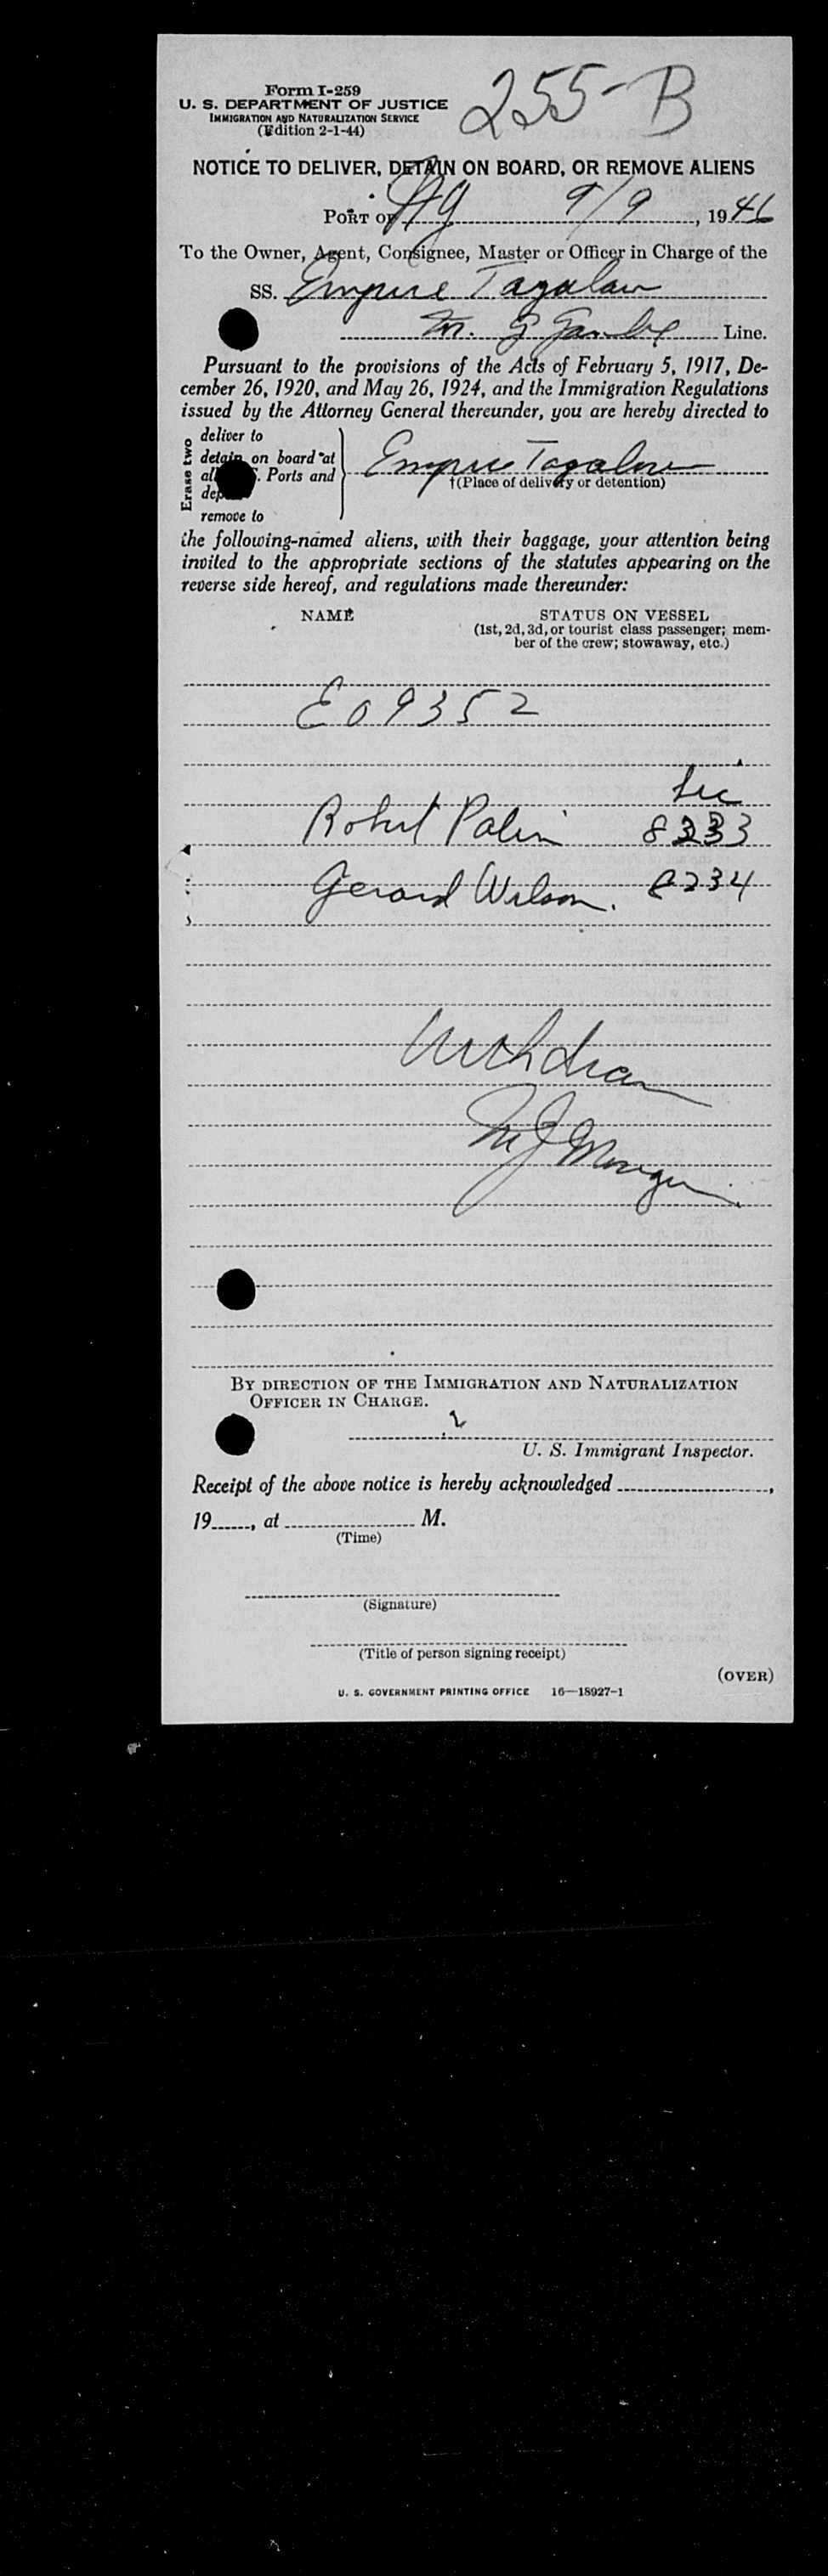 Form I-259
U. S. DEPARTMENT OF JUSTICE
IMMIGRATION AND NATURALIZATION SERVICE
(Edition 2-1-44)
255-B
NOTICE TO DELIVER, DETAIN ON BOARD, OR REMOVE ALIENS
PORT OF 9/9, 1946
To the Owner, Agent, Consignee, Master or Officer in Charge of the
SS. Empire Tagalam
Line.
Pursuant to the provisions of the Acts of February 5, 1917, De-
cember 26, 1920, and May 26, 1924, and the Immigration Regulations
issued by the Attorney General thereunder, you are hereby directed to
Erase two
deliver to
detain on board *at
Ports and
remove to
Empire Tagalam
†(Place of delivery or detention)
the following-named aliens, with their baggage, your attention being
invited to the appropriate sections of the statutes appearing on the
reverse side hereof, and regulations made thereunder:
NAME STATUS ON VESSEL
(1st, 2d, 3d, or tourist class passenger; mem-
ber of the crew; stowaway, etc.)
E09352
Robert Palin 8233
Gerard Wilson. 8234
Withdrawn
BY DIRECTION OF THE IMMIGRATION AND NATURALIZATION
OFFICER IN CHARGE.
U. S. Immigrant Inspector.
Receipt of the above notice is hereby acknowledged ,
19 , at M.
(Time)
(Signature)
(Title of person signing receipt)
(OVER)
U. S. GOVERNMENT PRINTING OFFICE 16—18927-1